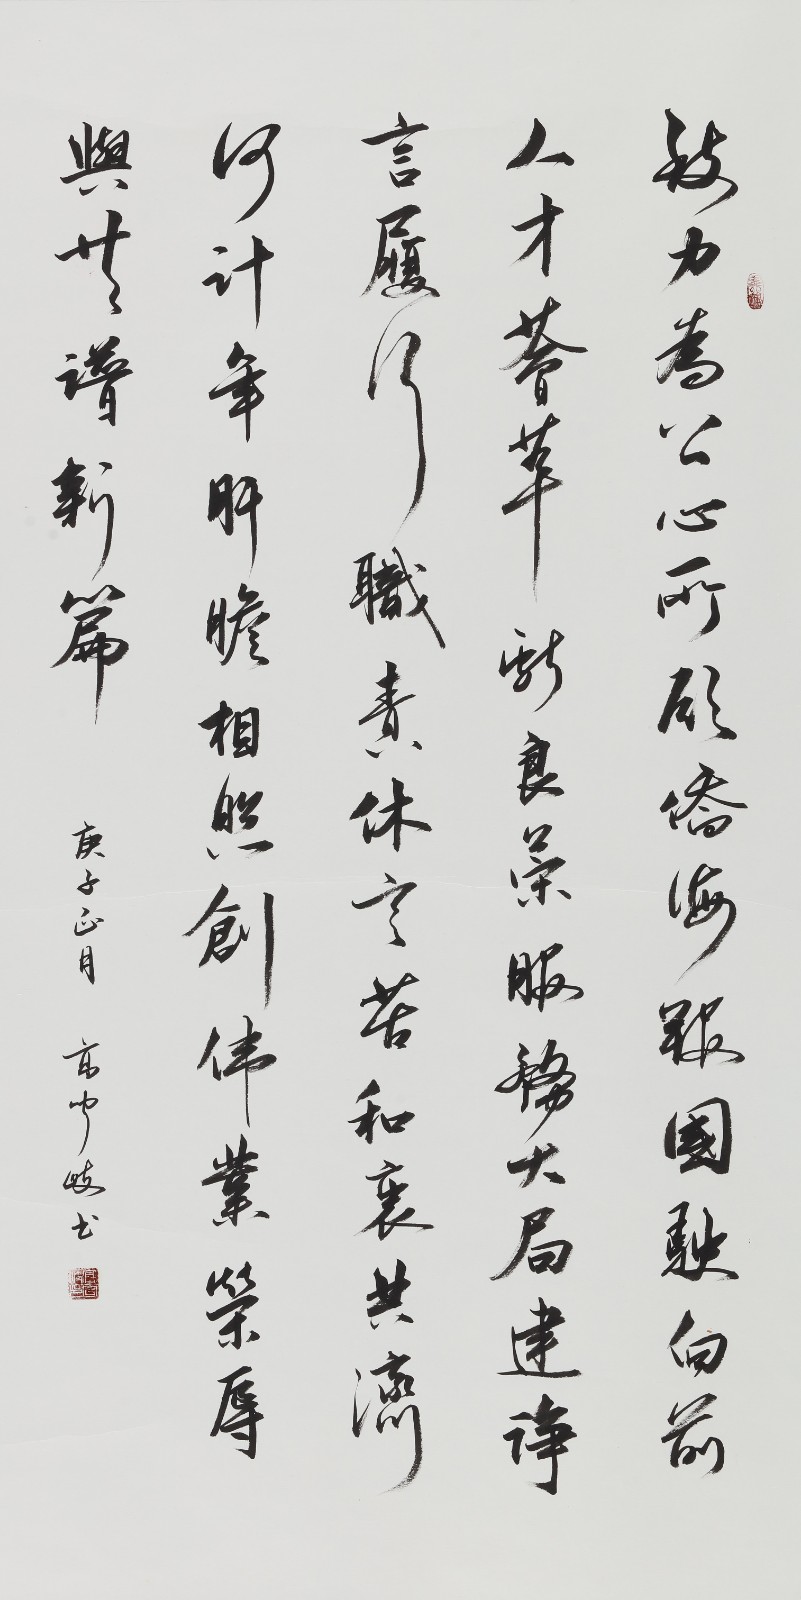 致力為公心所願僑海報國駛向前
人才薈萃獻良策服務大局建諍
言履行職責休言苦和衷共濟
何計年肝膽相照創偉業榮辱
與共譜新篇
庚子正月
高 岐书